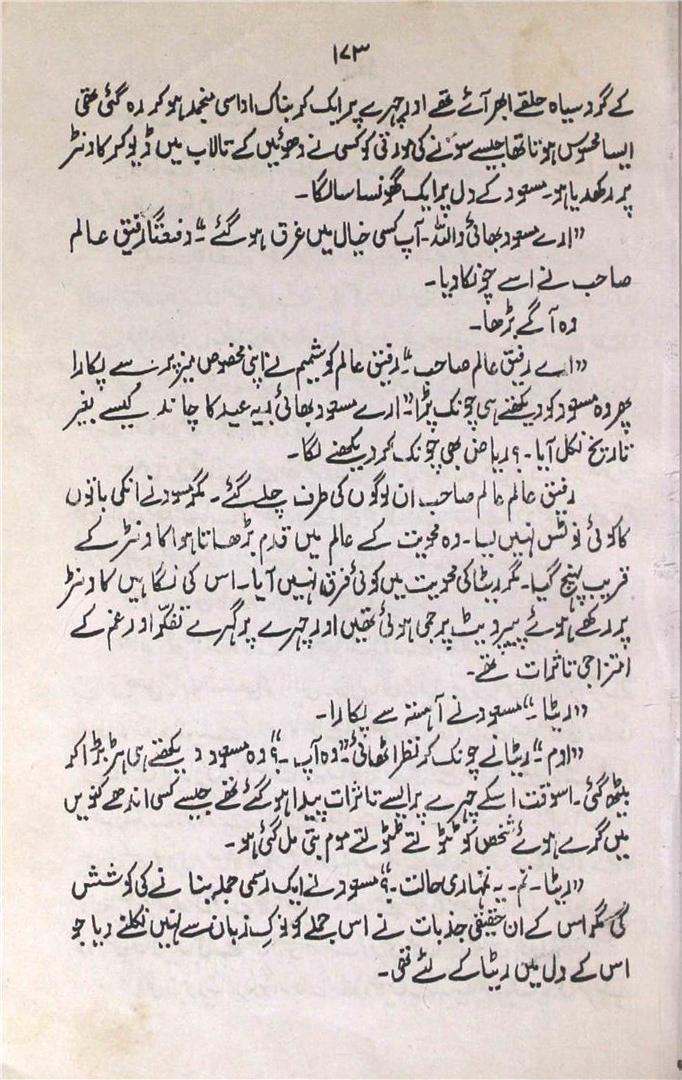 ۱۷۳
کے گرد سیاہ حلقے ابھر آئے تھے اور چہرے پر ایک کربناک اداسی منجمد ہو کر رہ گئی تھی
ایسا محسوس ہوتا تھا جیسے سونے کی مورتی کو کسی نے دھوئیں کے تالاب میں ڈبو کر کاونٹر
پر رکھدیا ہو۔ مسعود کے دل پر ایک گھونسا سا لگا۔
"ارے مسعود بھائی واللہ۔ آپ کسی خیال میں غرق ہو گئے۔" دفعتاً رفیق عالم
صاحب نے اسے چونکا دیا۔
وہ آگے بڑھا۔
"اے رفیق عالم صاحب۔" رفیق عالم کو شمیم نے اپنی مخصوص میز پر سے پکارا
پھر وہ مسعود کو دیکھتے ہی چونک پڑا۔ "ارے مسعود بھائی! یہ عید کا چاند کیسے بغیر
تاریخ نکل آیا۔؟ ریاض بھی چونک کر دیکھنے لگا۔
رفیق عالم عالم صاحب ان لوگوں کی طرف چلے گئے۔ مگر مسعود نے انکی باتوں
کا کوئی نوٹس نہیں لیا۔ وہ محویت کے عالم میں قدم بڑھاتا ہوا کاونٹر کے
قریب پہنچ گیا۔ مگر ریٹا کی محویت میں کوئی فرق نہیں آیا۔ اس کی نگاہیں کاونٹر
پر رکھے ہوئے پیپر ویٹ پر جمی ہوئی تھیں اور چہرے پر گہرے تفکر اور غم کے
امتزاجی تاثرات تھے۔
"ریٹا۔" مسعود نے آہستہ سے پکارا۔
"اوم۔" ریٹا نے چونک کر نظر اٹھائی۔ "وہ آپ۔؟" وہ مسعود دیکھتے ہی ہڑبڑا کر
بیٹھ گئی۔ اسوقت اسکے چہرے پر ایسے تاثرات پیدا ہو گئے تھے جیسے کسی اندھے کنویں
میں گرے ہوئے شخص کو ٹٹولتے ٹٹولتے موم بتی مل گئی ہو۔
"ریٹا۔ تم۔ یہ تمہاری حالت۔؟" مسعود نے ایک رسمی جملہ بنانے کی کوشش
کی مگر اس کے ان حقیقی جذبات نے اس جملے کو نوکِ زبان سے نہیں نکلنے دیا جو
اس کے دل میں ریٹا کے لئے تھی۔